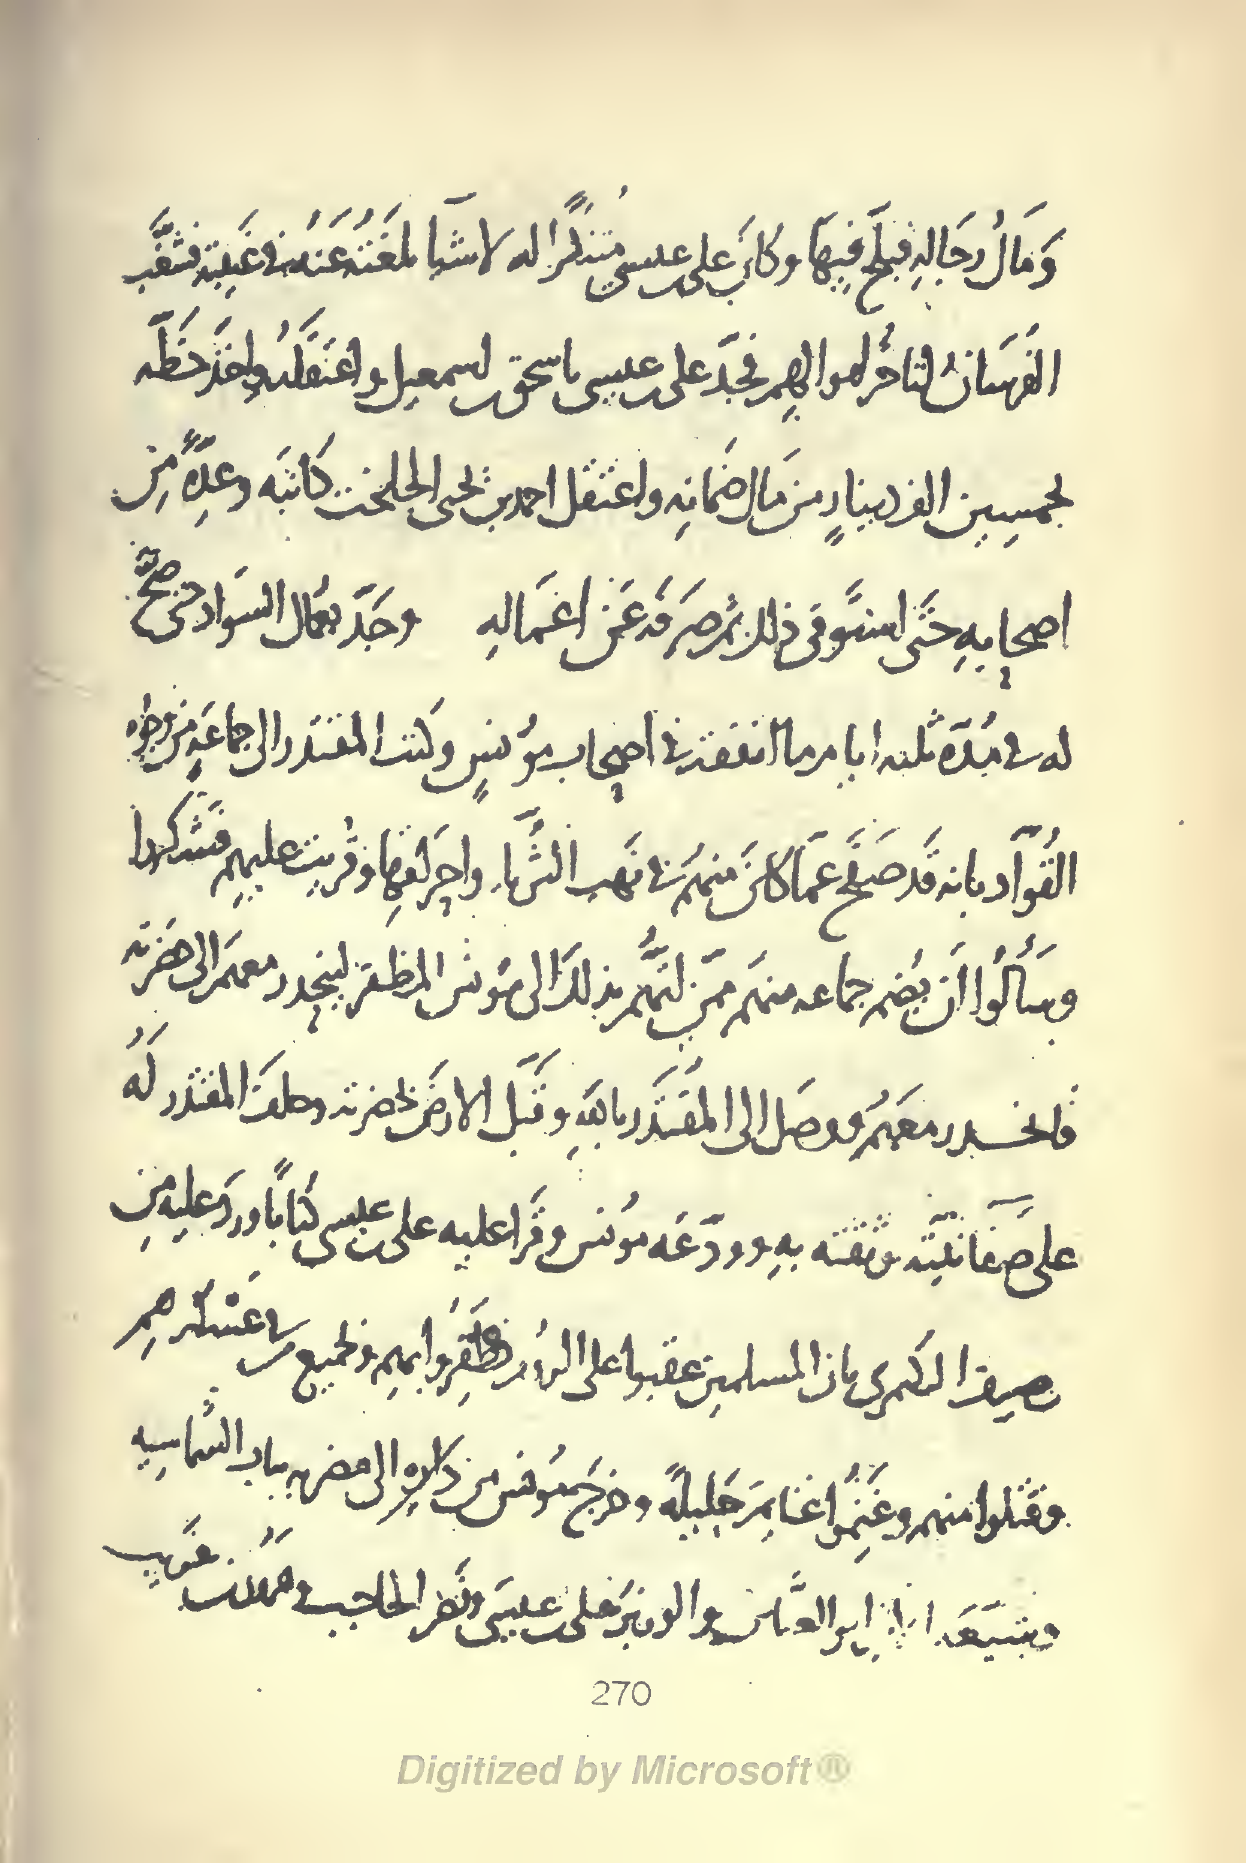 وَمَالُ رجَالِهِ فبلّح فِيهَا وكانَ على عيسى متنكرًا له لاشيآ بلغَتْهُ عَنهُ في غَيبتِه فشغَّب
الفُرسَانُ لتاخّر اموالهم فجدَّ على عيسى باسحق اسمعيل واعتَقَلَهُ واخَذَ خَطَّه
بخمسين الف دينارٍ من مَال ضمَانِه واعتقل احمد بن يحيى الجلخت كَاتبَه وعِدةً مِن
اصحابِهِ حتَّى استَوفى ذلك ثمَّ صرَفَه عَن اعمَالِهِ وجَدَّ بعُمال السَواد حتى صحَّ
له في مُدّة ثلثه ايام ما انفقه في اصحاب مؤنسٍ وكَتبَ المقتَدر الى جماعَةٍ من وجوه
القُوّاد بانه قَد صَفَح عَمّا كانَ منهُم في نَهب الثُريّا وقُريت عليهم فشكروا
وسَأَلُوا أَن يُضم جماعه منهم ممّن اتُّهم بذلك الى مؤنس المظفر لينحدر معهم الى حضرته
فانحدر معَهُم ووصَل الى المقتَدر بالله وقَبّل الارضَ بحضرته وحلفَ المقتدر لَهُ
على صَفا نيّته وثقته بهِ وودّعَه مؤنس وقَرا عليه على عيسى كتابًا وردَ عليه مِن
وصيف البكتمرى بان المسلمين عقبوا على الرُوم فظَفِروا بهم وبجميع من في عَسكرهم
وقتلوا منهم وغَنِمُوا غنايم جَليلةً وخرجَ مؤنس من دَارِهِ الى مضربه بباب الشّماسيه
وشيّعَه ابو العبَّاس والوزير على عيسَى ونَصر الحاجب
270
Digitized by Microsoft®